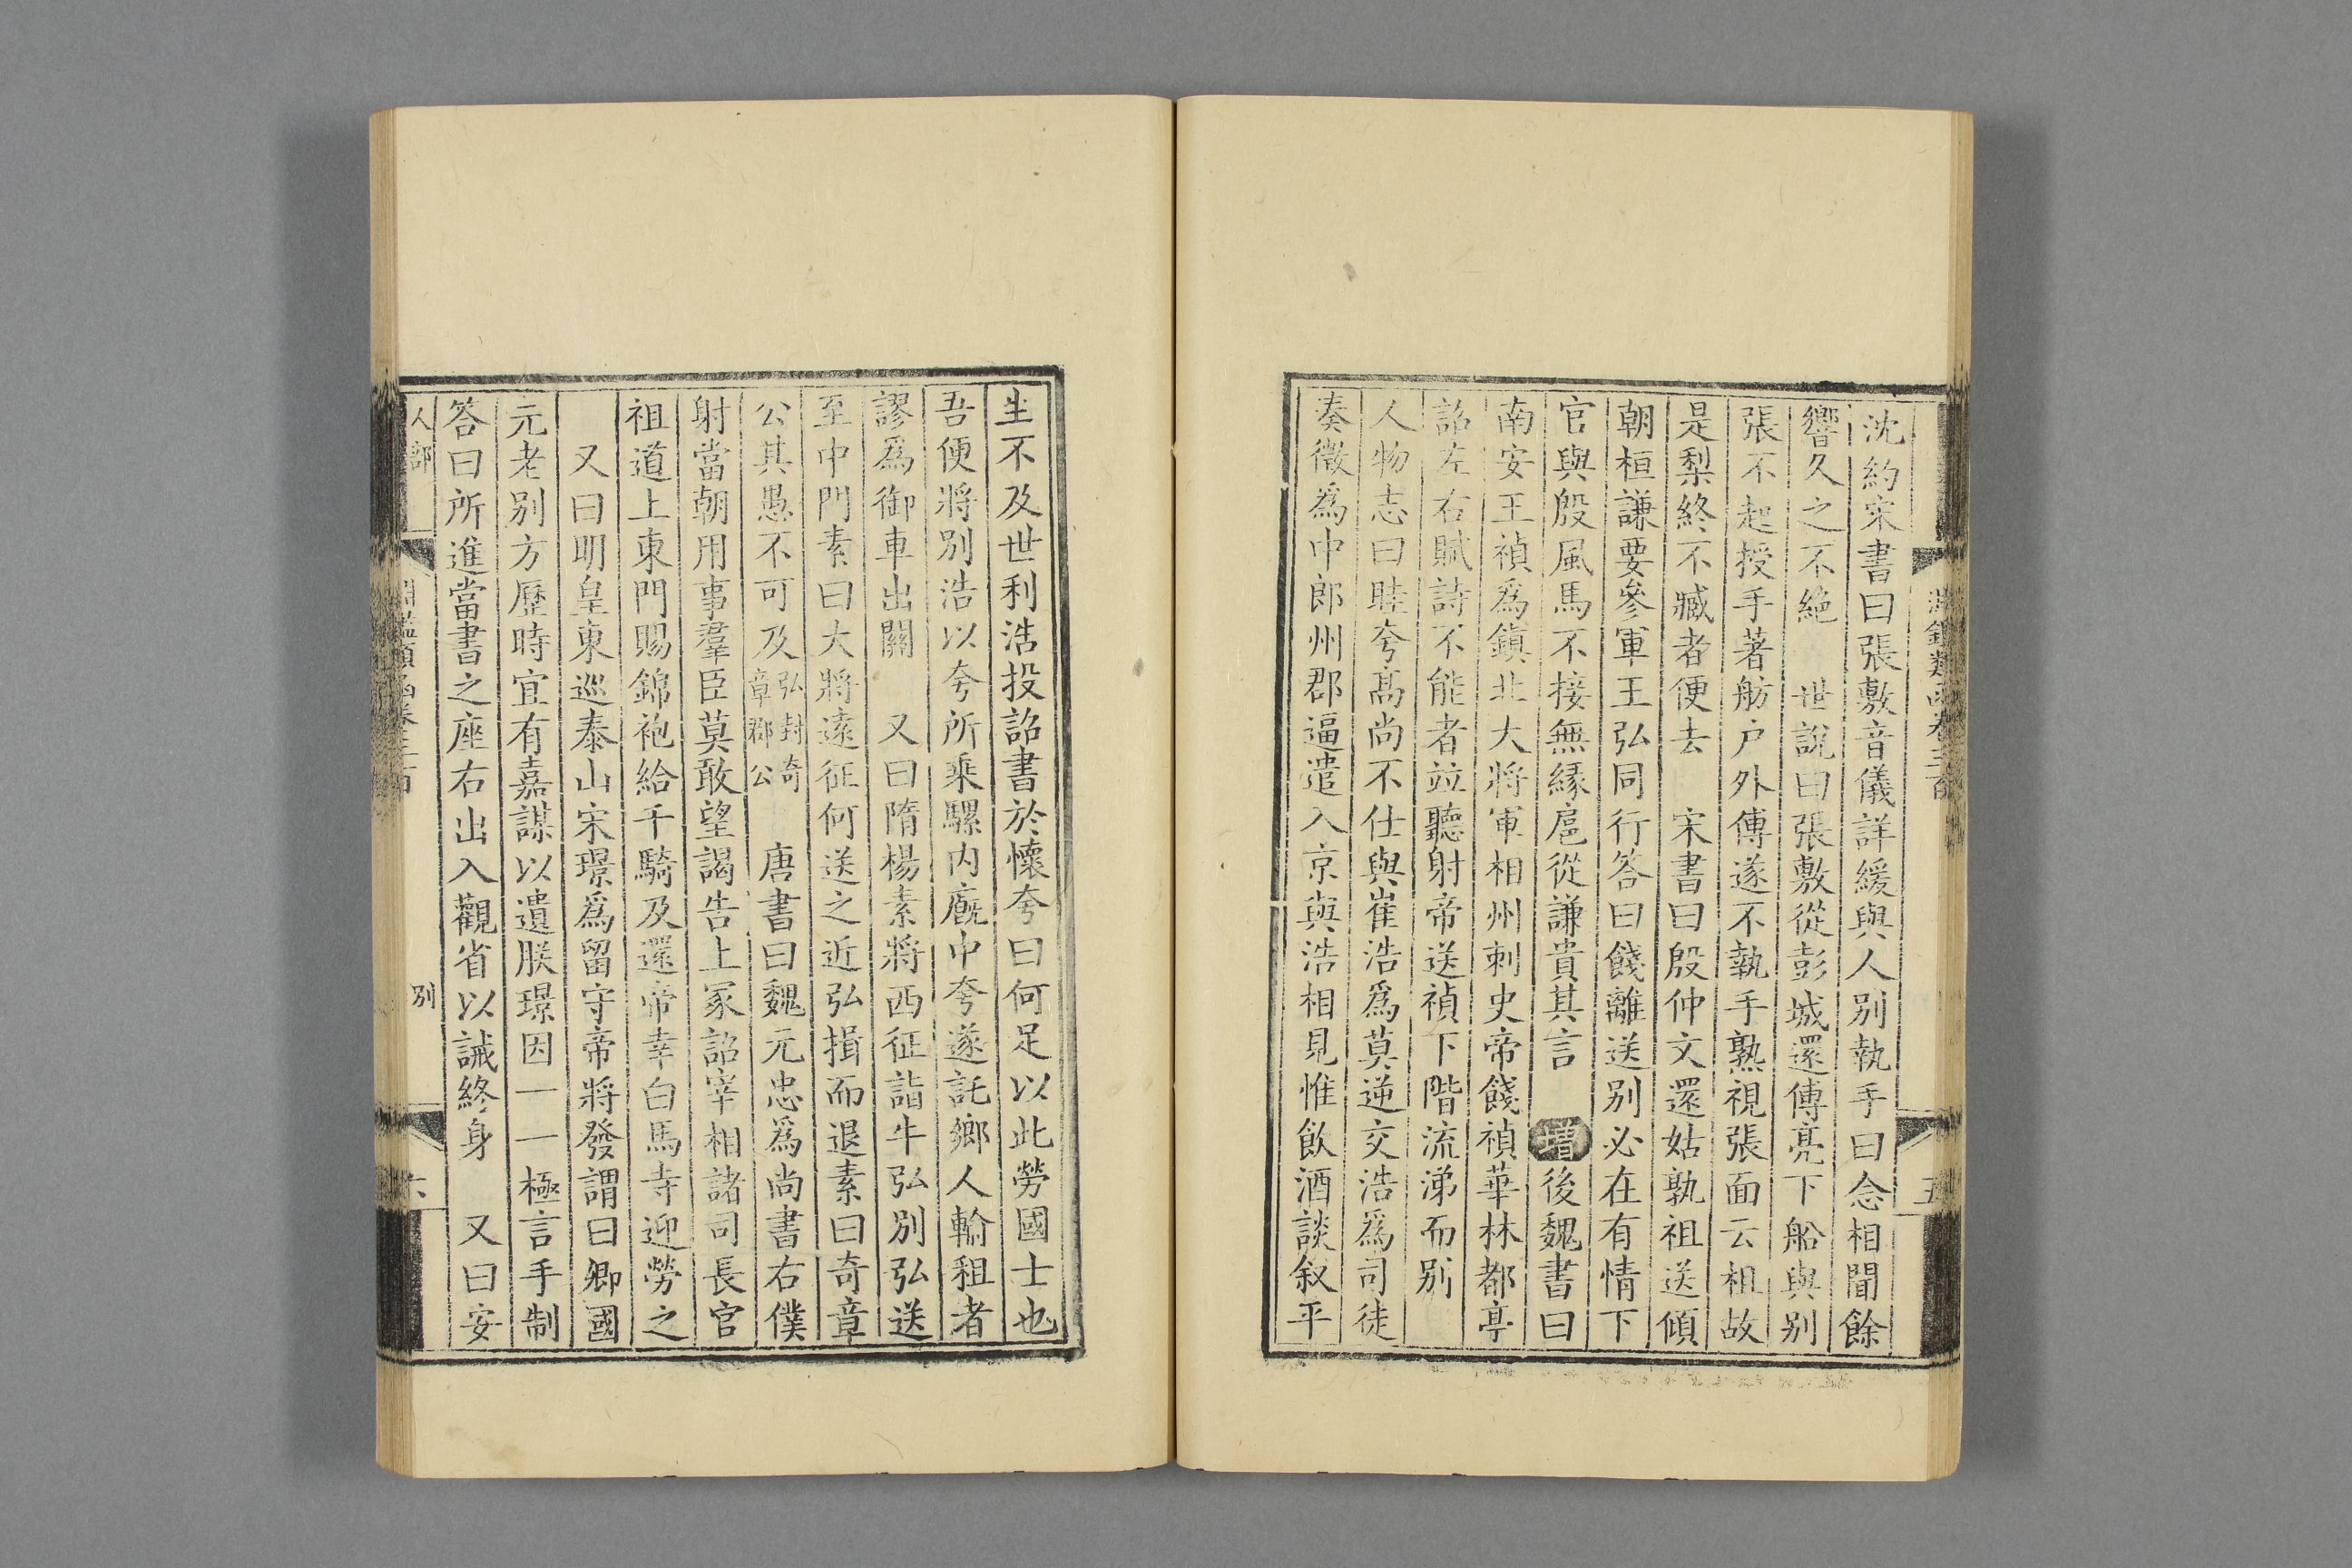 淵鑑類函卷三百
五
沈約宋書曰張敷音儀詳緩與人別執手曰念相聞餘
響久之不絶　世說曰張敷從彭城還傅亮下船與別
張不起授手著舫户外傅遂不執手熟視張面云祖故
是梨終不臧者便去　宋書曰殷仲文還姑孰祖送傾
朝桓謙要參軍王弘同行答曰餞離送別必在有情下
官與殷風馬不接無緣扈從謙貴其言　增後魏書曰
南安王禎爲鎮北大將軍相州刺史帝餞禎華林都亭
詔左右賦詩不能者竝聽射帝送禎下階流涕而別
人物志曰眭夸高尚不仕與崔浩爲莫逆交浩爲司徒
奏徵爲中郎州郡逼遣入京與浩相見惟飲酒談叙平
生不及世利浩投詔書於懷夸曰何足以此勞國士也
吾便將別浩以夸所乘騾内廐中夸遂託鄉人輸租者
謬爲御車出關　又曰隋楊素將西征詣牛弘別弘送
至中門素曰大將遠征何送之近弘揖而退素曰奇章
公其愚不可及弘封奇章郡公　唐書曰魏元忠爲尚書右僕
射當朝用事羣臣莫敢望謁告上冢詔宰相諸司長官
祖道上東門賜錦袍給千騎及還帝幸白馬寺迎勞之
又曰明皇東巡泰山宋璟爲留守帝將發謂曰卿國
元老別方歷時宜有嘉謀以遺朕璟因一一極言手制
答曰所進當書之座右出入觀省以誡終身　又曰安
人部
淵鑑類函卷三百
別
六